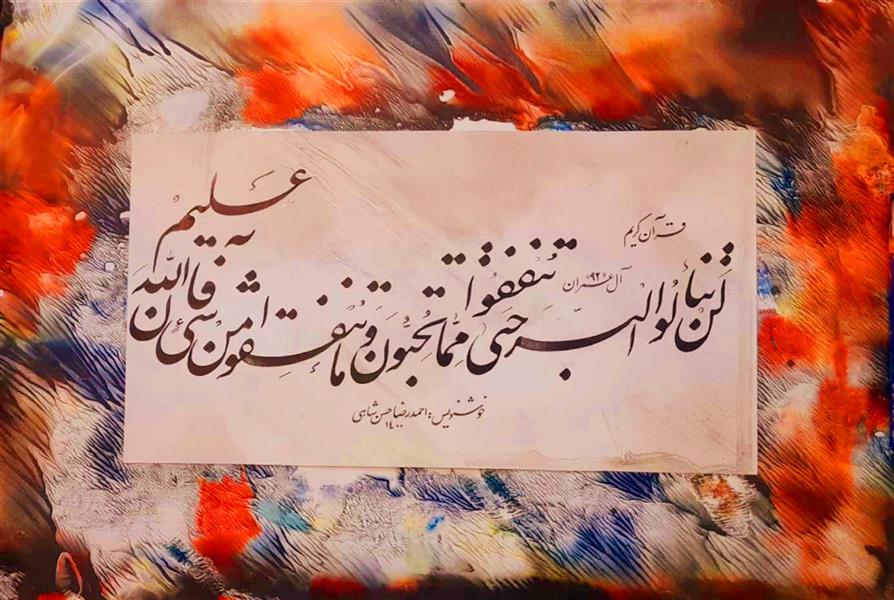 قرآن کریم
آل عمران «۹۲»
لَن تنالوا البرّ حتی تُنفقوا مِمّا تُحبّونَ وَ ما تُنفِقوا مِن شَیٍٔ فَاِنَّ اللّٰهَ بِهِ عَلیمٌ
خوشنویس: احمدرضا حسن شاهی
۱۴۰۰